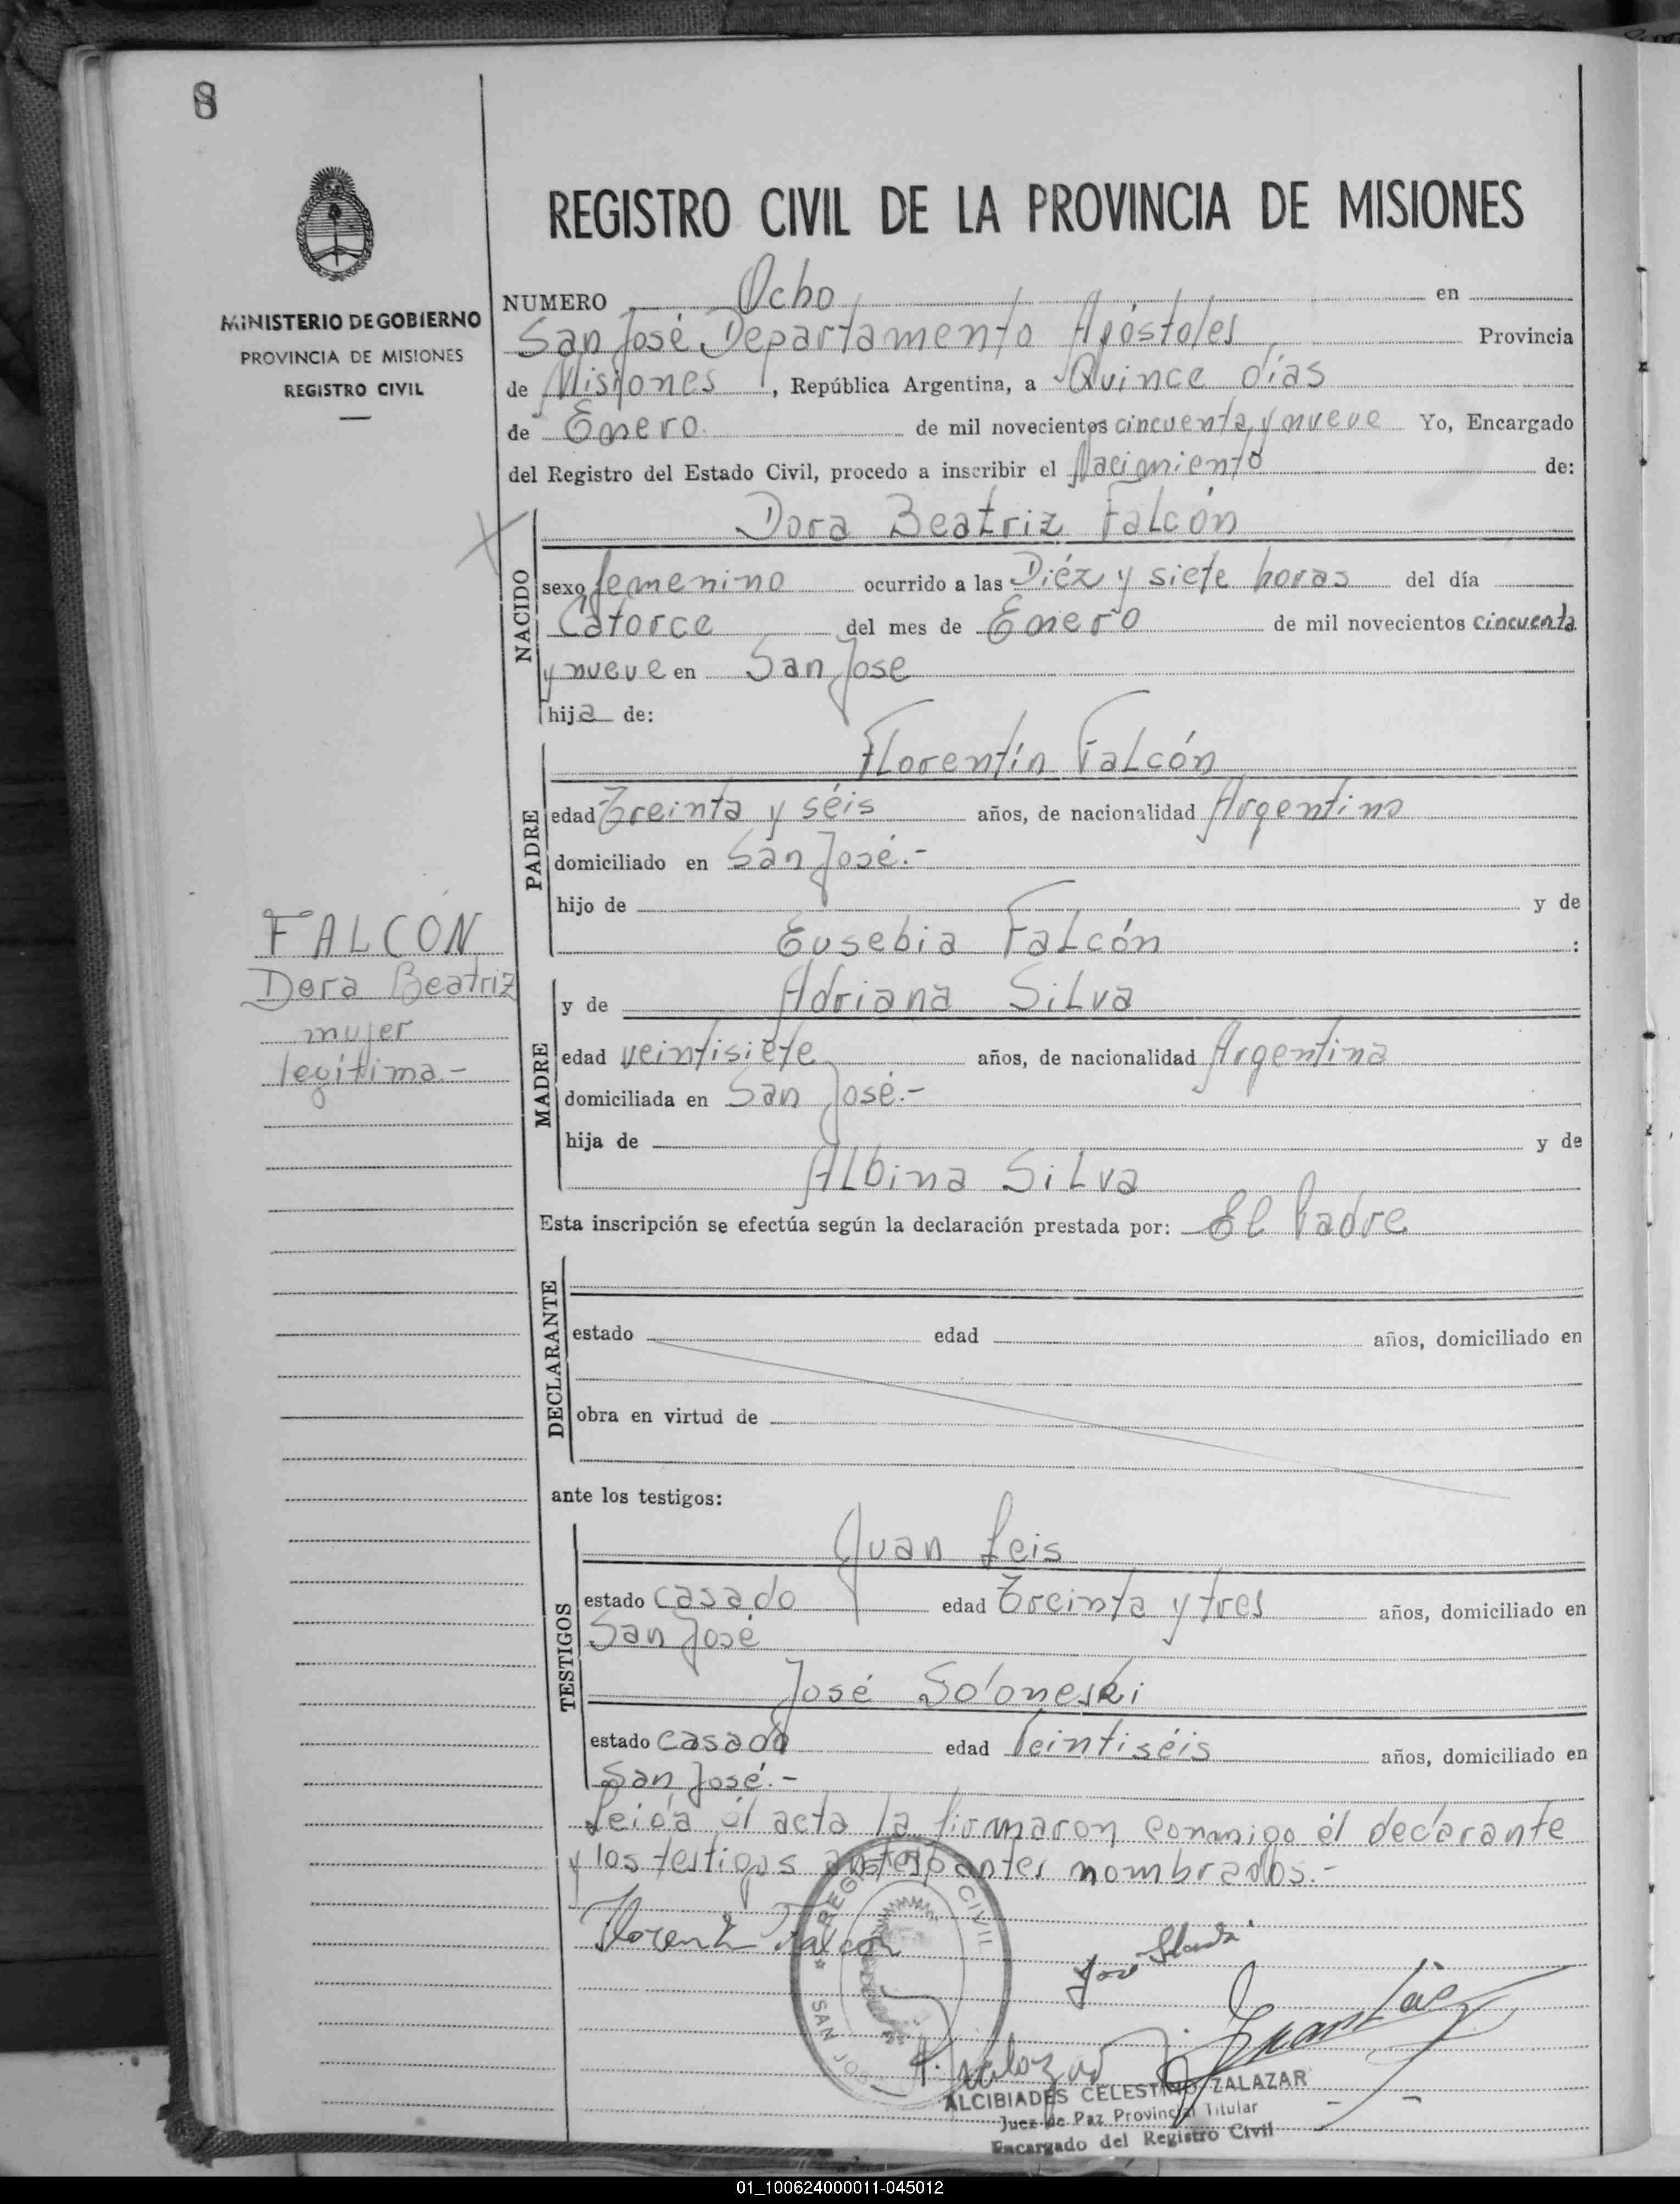 8
REGISTRO CIVIL DE LA PROVINCIA DE MISIONES
MINISTERIO DE GOBIERNO
PROVINCIA DE MISIONES
REGISTRO CIVIL
NUMERO Ocho en
San José, Departamento Apóstoles, Provincia
de Misiones, República Argentina, a Quince días
de Enero de mil novecientos cincuenta y nueve Yo, Encargado
del Registro del Estado Civil, procedo a inscribir el Nacimiento de:
NACIDO
Dora Beatriz Falcón
sexo femenino ocurrido a las Diéz y siete horas del día
Catorce del mes de Enero de mil novecientos cincuenta
y nueve en San José
hija de:
PADRE
Florentín Falcón
edad Treinta y séis años, de nacionalidad Argentino
domiciliado en San José.-
hijo de y de
Eusebia Falcón :
FALCON
Dora Beatriz
mujer
legítima.-
MADRE
y de Adriana Silva
edad veintisiete años, de nacionalidad Argentina
domiciliada en San José.-
hija de y de
Albina Silva
Esta inscripción se efectúa según la declaración prestada por: El Padre
DECLARANTE
estado edad años, domiciliado en
obra en virtud de
ante los testigos:
TESTIGOS
Juan Leis
estado casado edad Treinta y tres años, domiciliado en
San José
José Soloneski
estado casado edad Veintiséis años, domiciliado en
San José.-
Leida el acta la firmaron conmigo él declarante
y los testigos nombrados.-
Florentín Falcon
REGISTRO CIVIL
SAN JOSE
José
Juan Leis
A. Zalazar
ALCIBIADES CELESTINO ZALAZAR
Juez de Paz Provincial Titular
Encargado del Registro Civil
01_100624000011-045012